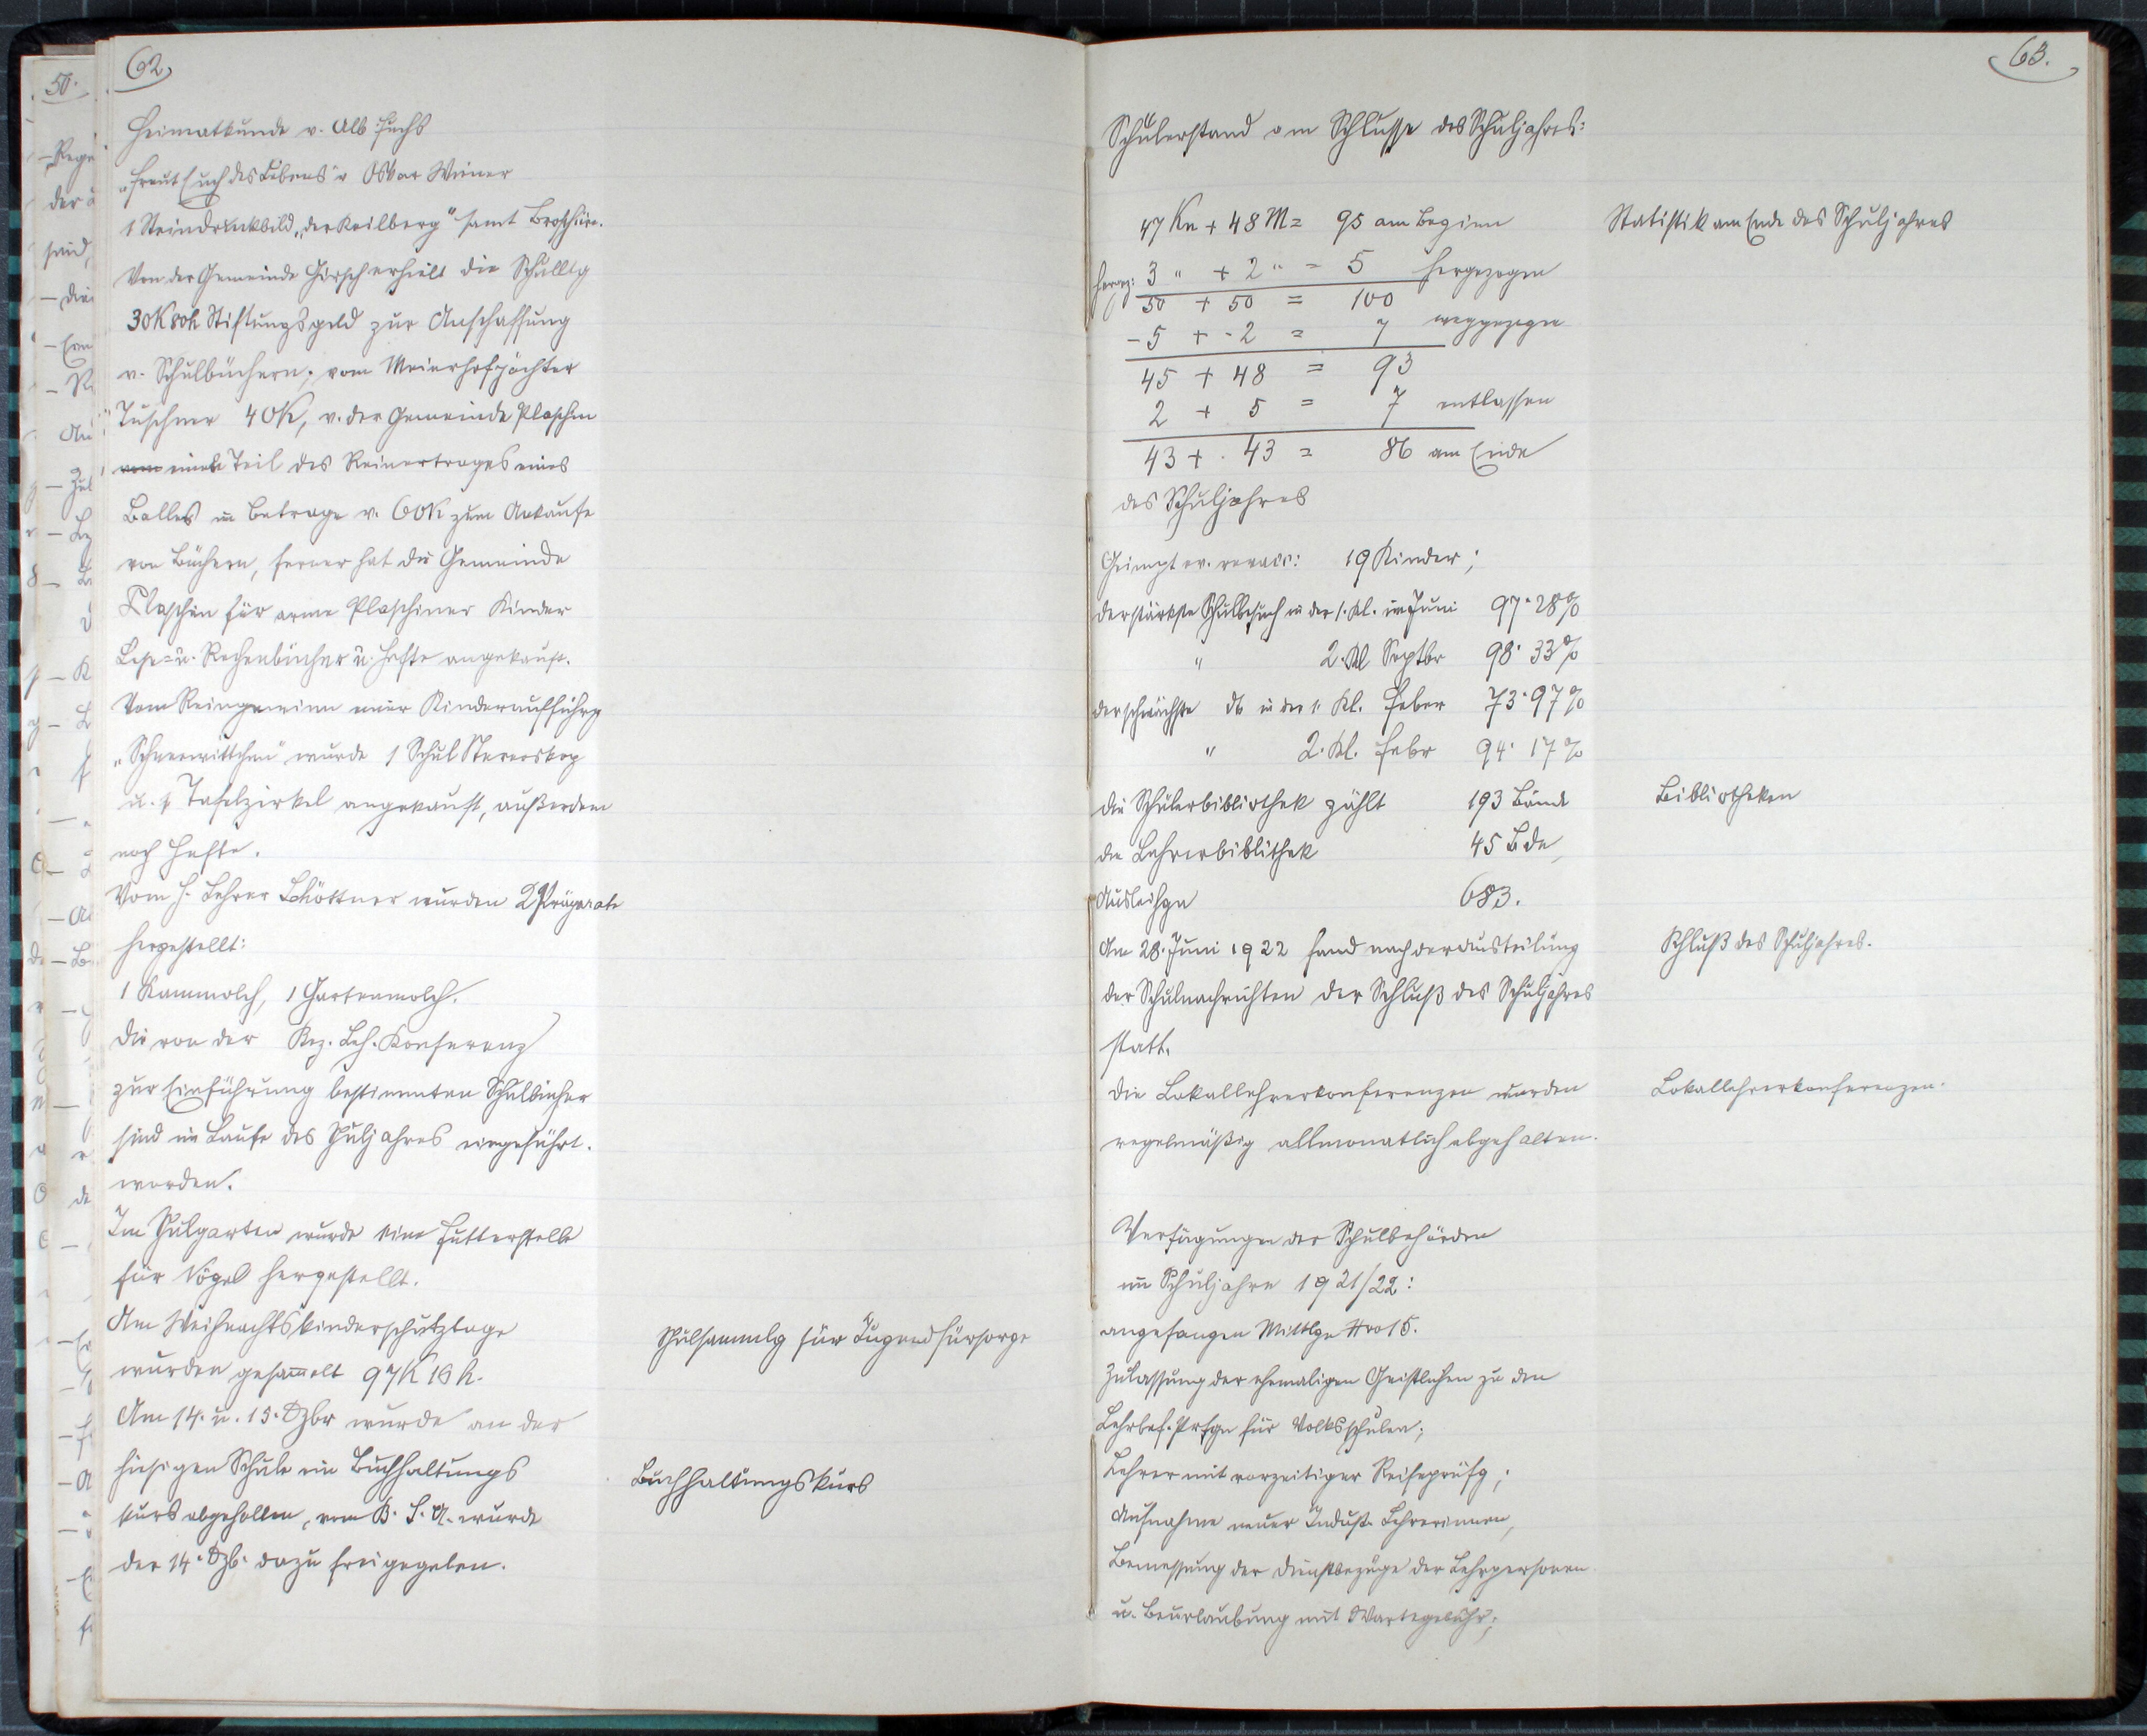 62.
Heimatkunde v. Alb. Fuchs
„Freut Euch des Lebens" v. Oskar Wiener
1 Steindruckbild „der Keilberg" samt Broschüre.
Von der Gemeinde Girsch erhielt die Schulltg
30K 80h Stiftungsgeld zur Anschaffung
v. Schulbüchern; vom Meierhofpächter
Tuschner 40K, v. der Gemeinde Plaschin
einen Teil des Reinertrages eines
Balles im Betrage v. 60K zum Ankaufe
von Büchern, ferner hat die Gemeinde
Plaschin für arme Plaschiner Kinder
Lese= u. Rechenbücher u. Hefte angekauft.
Vom Reingewinn einer Kinderaufführg
„Schneewittchen" wurde 1 Schul Stereoskop
u. 1 Tafelzirkel angekauft, außerdem
noch Hefte.
Vom H. Lehrer Schöttner wurden 2 Präparate
hergestellt:
1 Kammolch, 1 Gartenmolch.
Die von der Bez. Leh. Konferenz
zur Einführung bestimmten Schulbücher
sind im Laufe des Schuljahres eingeführt.
worden.
Im Schulgarten wurde eine Futterstelle
für Vögel hergestellt.
Am Weihnachtskinderschutztage
wurden gesammelt 97K 16h.
Schulsammlg für Jugendfürsorge
Am 14. u. 15. Dzbr wurde an der
hiesigen Schule ein Buchhaltungs
kurs abgehalten, vom B. S. A. wurde
der 14. Dzb. dazu freigegeben.
Buchhaltungskurs
63.
Schülerstand am Schlusse des Schuljahres:
47 Kn + 48 M = 95 am Beginn
Statistik am Ende des Schuljahres
hergez: 3 " + 2 " = 5 hergezogen
50 + 50 = 100
-5 + -2 = 7 weggezogen
45 + 48 = 93
2 + 5 = 7 entlassen
43 + 43 = 86 am Ende
des Schuljahres
Geimpft ev. revacc: 19 Kinder;
der stärkste Schulbesuch in der 1. Kl. im Juni 97·28%
" 2. Kl Septbr 98·33%
der schwächste do in der 1. Kl. Feber 73·97%
" 2. Kl. Febr 94·17%
Die Schülerbibliothek zählt 193 Bände
Bibliotheken
die Lehrerbiblithek 45 Bde
Ausleihgn 683.
Am 28. Juni 1922 fand nach der Austeilung
der Schulnachrichten der Schluß des Schuljahres
statt.
Schluß des Schuljahres.
Die Lokallehrerkonferenzen wurden
regelmäßig allmonatlich abgehalten.
Lokallehrerkonferenzen.
Verfügungen der Schulbehörden
im Schuljahre 1921/22:
angefangen Mittlgn Nro 15.
Zulassung der ehemaligen Geistlichen zu den
Lehrbef. Prfgn für Volksschulen;
Lehrer mit vorzeitiger Reifeprüfg;
Aufnahme neuer Indust. Lehrerinnen,
Bemessung der Dienstbezüge der Lehrpersonen
u. Beurlaubung mit Wartegebühr;